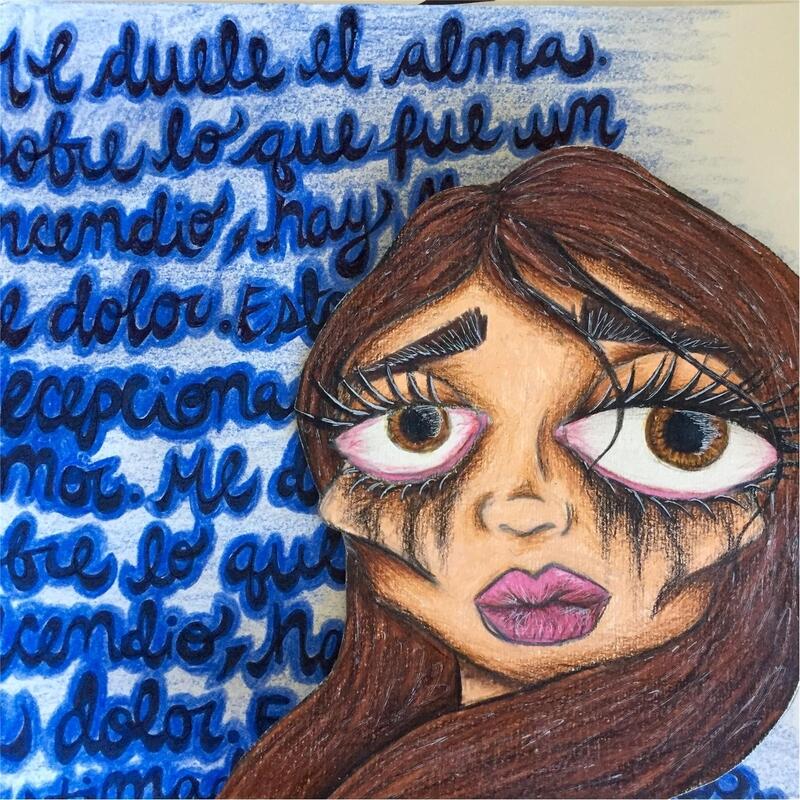 Me duele el alma.
sobre lo que fue un
ncendio, hay
e dolor. Esto
ecepciona
mor. Me d
bre lo que
cendio, ha
dolor. E
tima